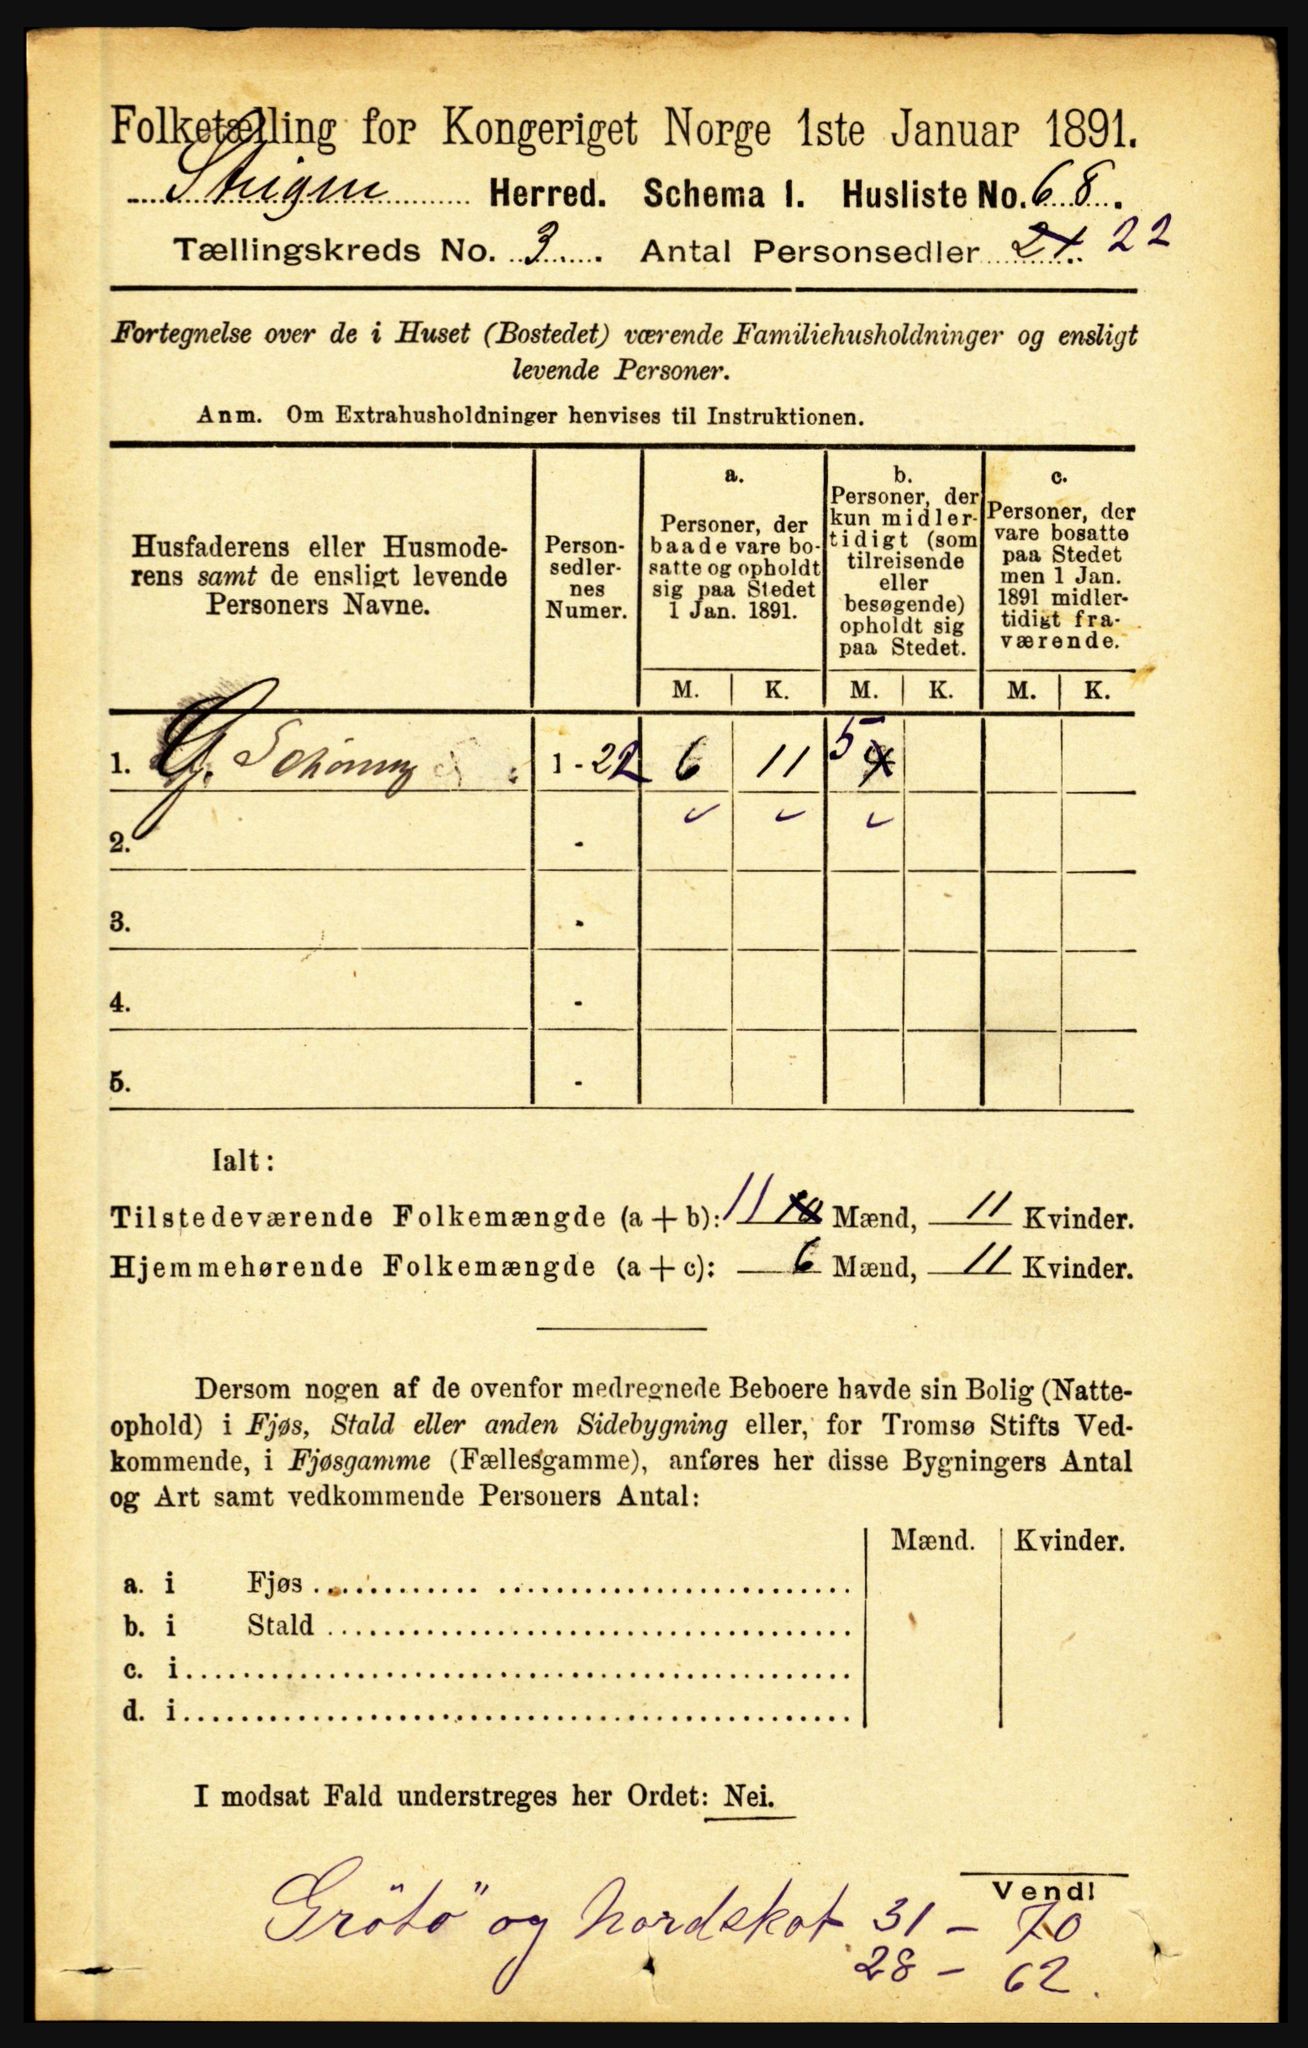 Folketælling for Kongeriget Norge 1ste Januar 1891.
Steigen Herred. Schema I. Husliste No. 68.
Tællingskreds No. 3. Antal Personsedler 21 22
Fortegnelse over de i Huset (Bostedet) værende Familiehusholdninger og ensligt
levende Personer.
Anm. Om Extrahusholdninger henvises til Instruktionen.
Husfaderens eller Husmoderens samt de ensligt levende Personers Navne.
Personsedlernes Numer.
a.
Personer, der baade vare bosatte og opholdt sig paa Stedet 1 Jan. 1891.
b.
Personer, der kun midlertidigt (som tilreisende eller besøgende) opholdt sig paa Stedet.
c.
Personer, der vare bosatte paa Stedet men 1 Jan. 1891 midlertidigt fraværende.
M. K. M. K. M. K.
1. G. Schøning 1 - 22 6 11 5
2. -
3. -
4. -
5. -
Ialt:
Tilstedeværende Folkemængde (a + b): 11 10 Mænd, 11 Kvinder.
Hjemmehørende Folkemængde (a + c): 6 Mænd, 11 Kvinder.
Dersom nogen af de ovenfor medregnede Beboere havde sin Bolig (Natte-
ophold) i Fjøs, Stald eller anden Sidebygning eller, for Tromsø Stifts Ved-
kommende, i Fjøsgamme (Fællesgamme), anføres her disse Bygningers Antal
og Art samt vedkommende Personers Antal:
Mænd. Kvinder.
a. i Fjøs
b. i Stald
c. i
d. i
I modsat Fald understreges her Ordet: Nei.
Vend!
Grötö og Nordskot 31 - 70
28 - 62.